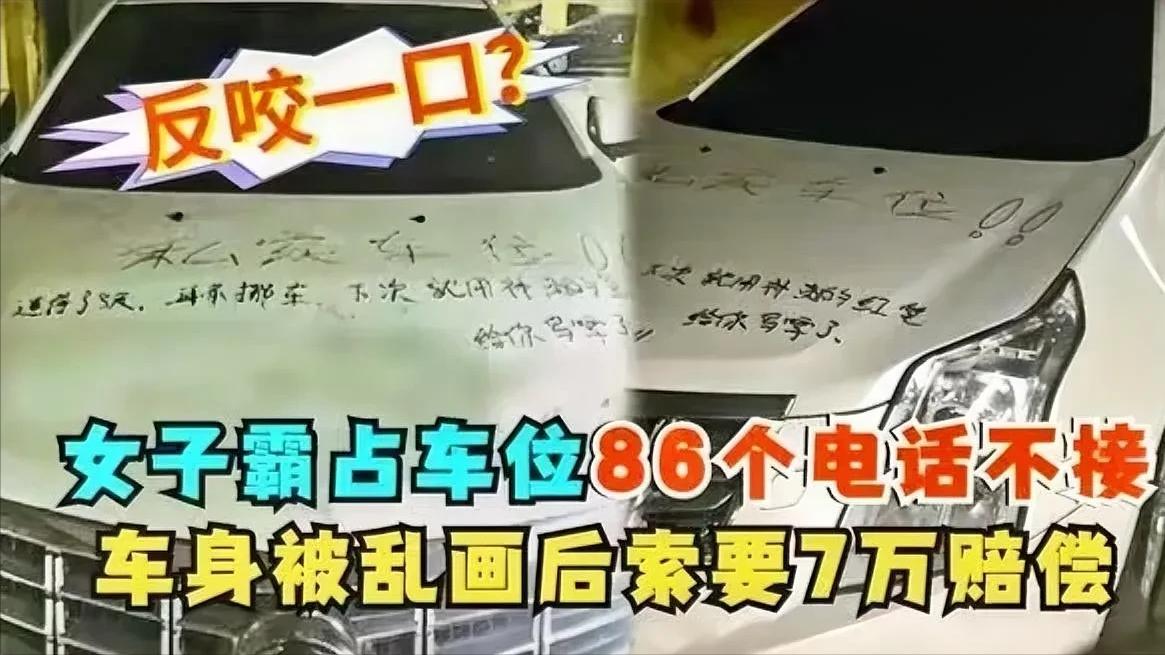 反咬一口?
私家车位
再不挪车 下次就用
给你写字了
家车位!!
次就用 红色
给你写字了.
女子霸占车位86个电话不接
车身被乱画后索要7万赔偿